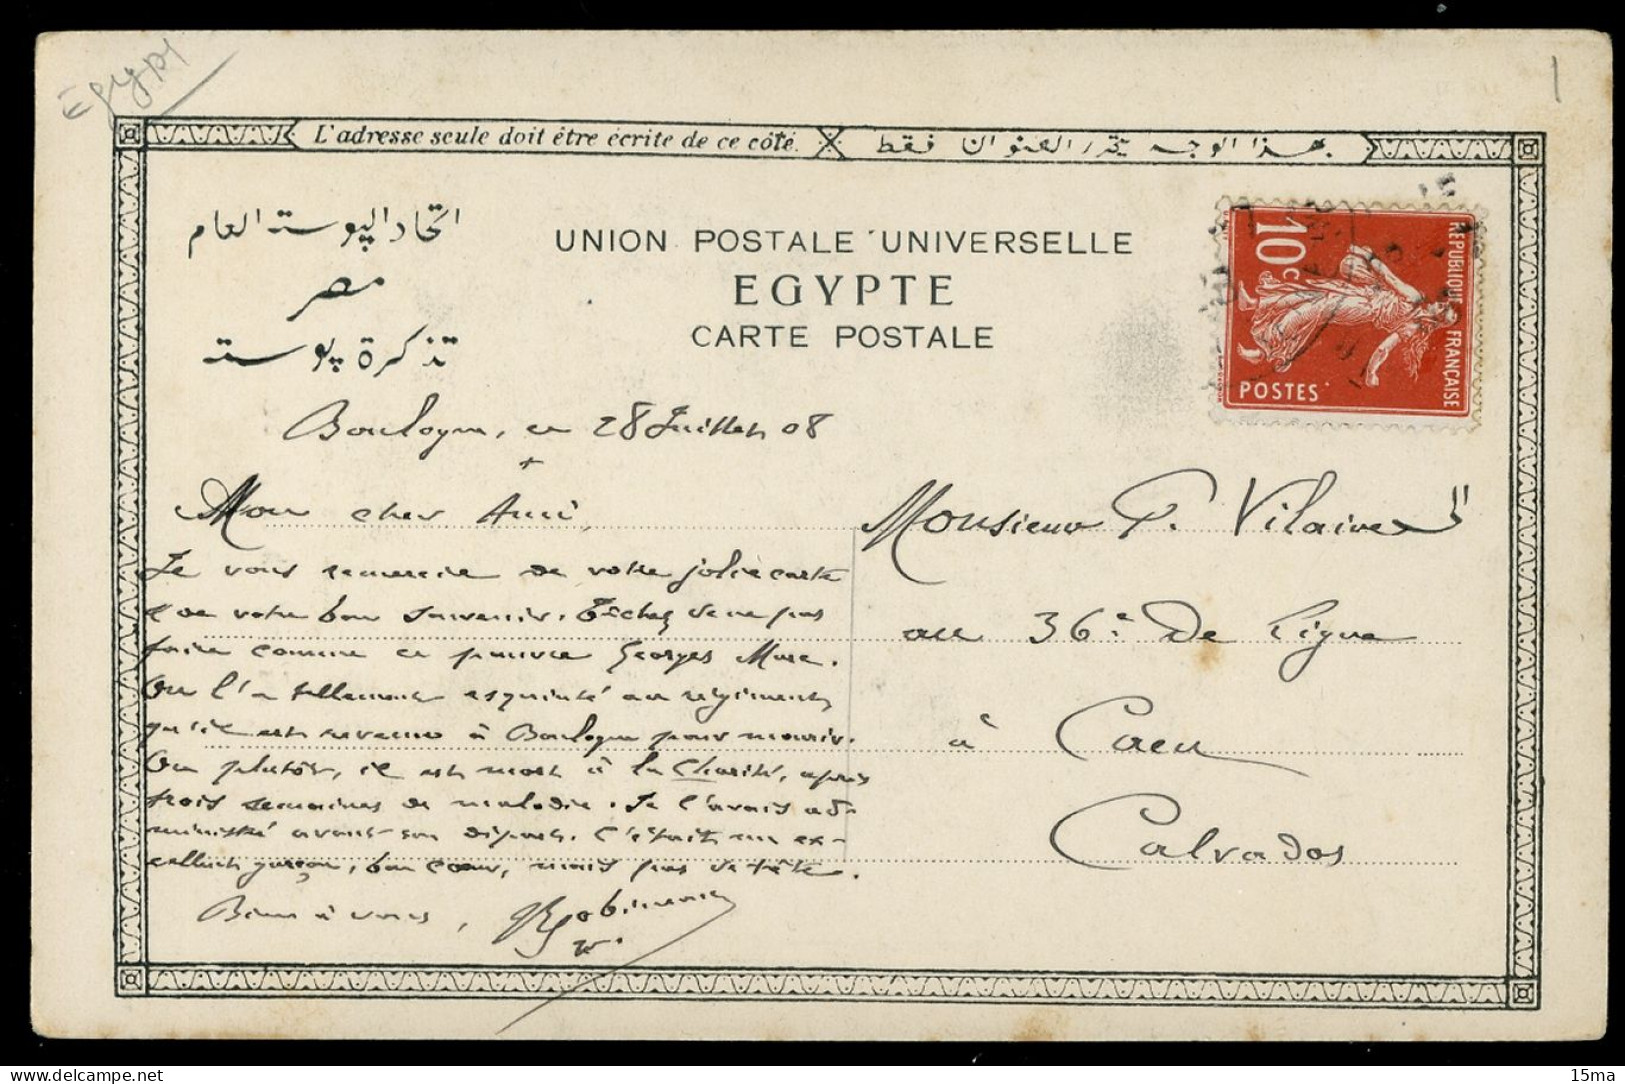 Egypt
1
L'adresse seule doit être écrite de ce côté.
بهذا الوجه يتحرر العنوان فقط
اتحاد البوسته العام
مصر
تذكرة بوسته
UNION POSTALE UNIVERSELLE
EGYPTE
CARTE POSTALE
REPUBLIQUE FRANÇAISE
10c
POSTES
Boulogne, ce 28 Juillet 08
Mon cher Ami,
Je vous remercie de votre jolie carte
& de votre bon souvenir. Tâchez de ne pas
faire comme ce pauvre Georges Marc.
On l'a tellement esquinté au régiment
qu'il est revenu à Boulogne pour mourir.
Ou plutôt, il est mort à la Charité, après
trois semaines de maladie. Je l'avais ad-
ministré avant son départ. C'était un ex-
cellent garçon, bon cœur, mais pas de tête.
Bien à vous,
Monsieur P. Vilaire
au 36e de Ligne
à Caen
Calvados
15ma